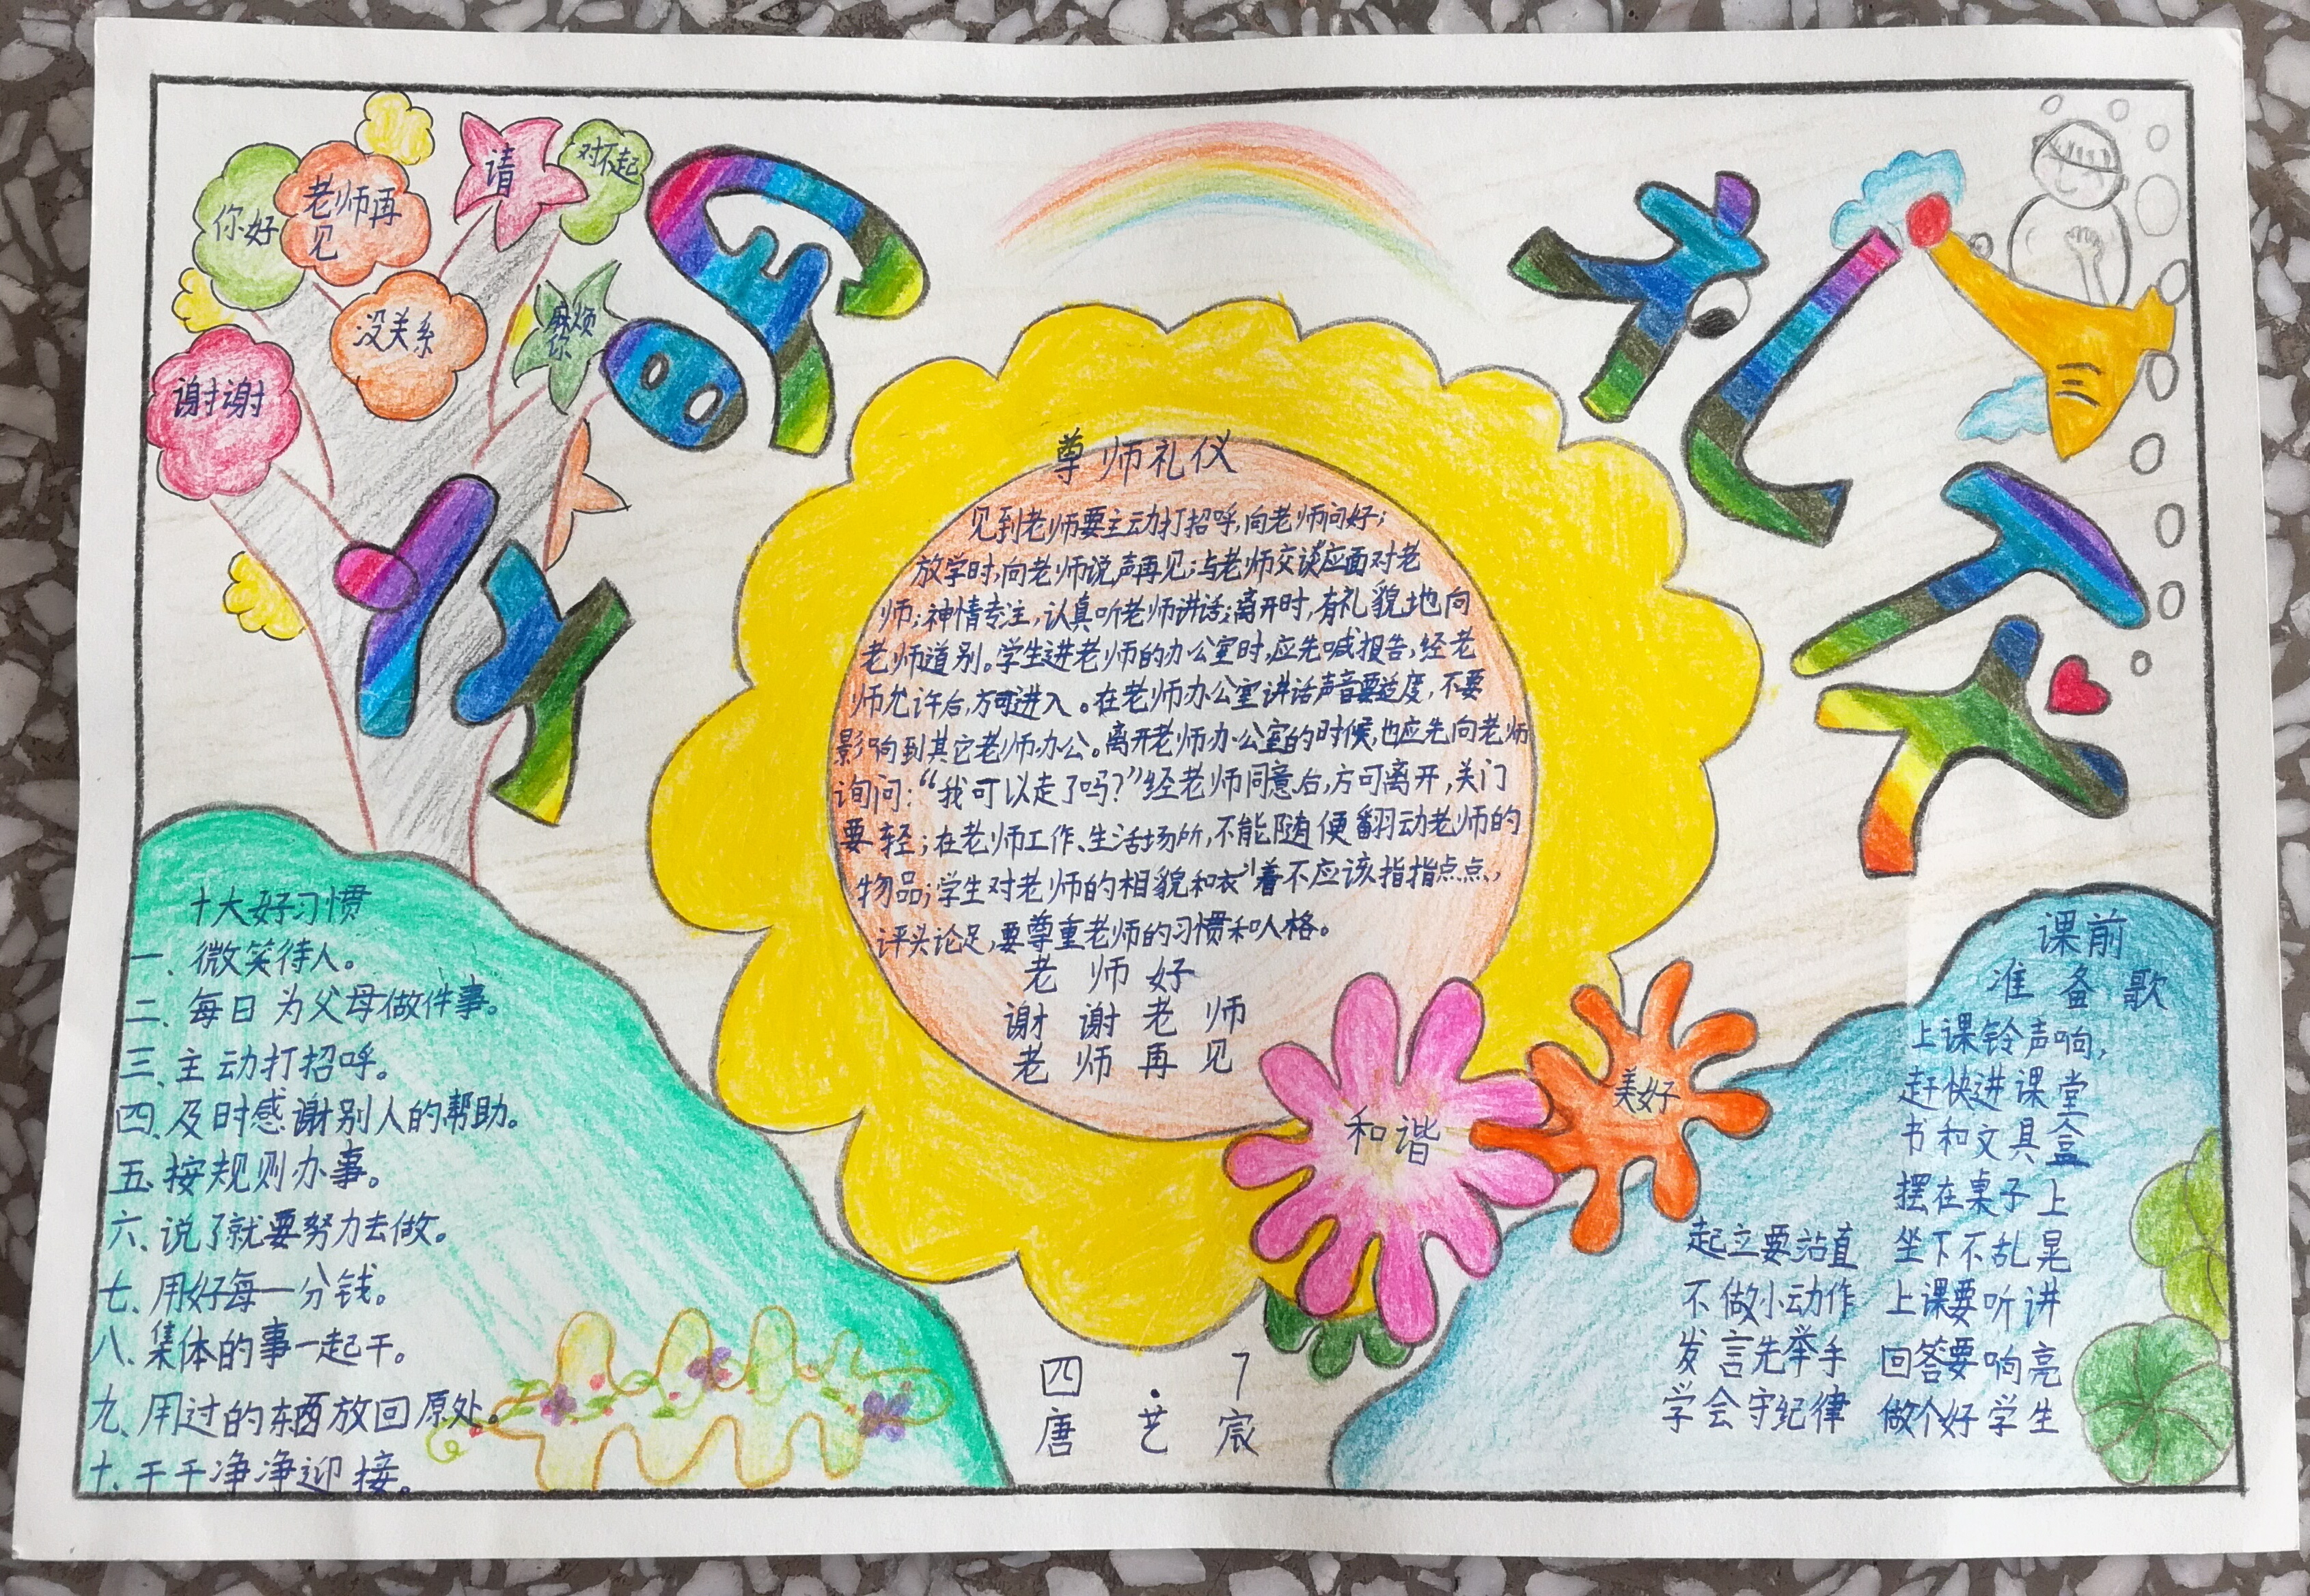 你好
老师再
见
请
对不起
没关系
麻烦
你
谢谢
文明
礼仪
尊师礼仪
见到老师要主动打招呼,向老师问好;
放学时,向老师说声再见;与老师交谈应面对老
师;神情专注,认真听老师讲话;离开时,有礼貌地向
老师道别。学生进老师的办公室时,应先喊报告,经老
师允许后,方可进入。在老师办公室讲话声音要适度,不要
影响到其它老师办公。离开老师办公室的时候,也应先向老师
询问:“我可以走了吗?”经老师同意后,方可离开,关门
要轻;在老师工作、生活场所,不能随便翻动老师的
物品;学生对老师的相貌和衣着不应该指指点点,
评头论足,要尊重老师的习惯和人格。
老师好
谢谢老师
老师再见
和谐
美好
十大好习惯
一、微笑待人。
二、每日为父母做件事。
三、主动打招呼。
四、及时感谢别人的帮助。
五、按规则办事。
六、说了就要努力去做。
七、用好每一分钱。
八、集体的事一起干。
九、用过的东西放回原处。
十、干干净净迎接。
课前
准备歌
上课铃声响,
赶快进课堂
书和文具盒
摆在桌子上
坐下不乱晃
上课要听讲
回答要响亮
做个好学生
起立要站直
不做小动作
发言先举手
学会守纪律
四.7
唐艺宸